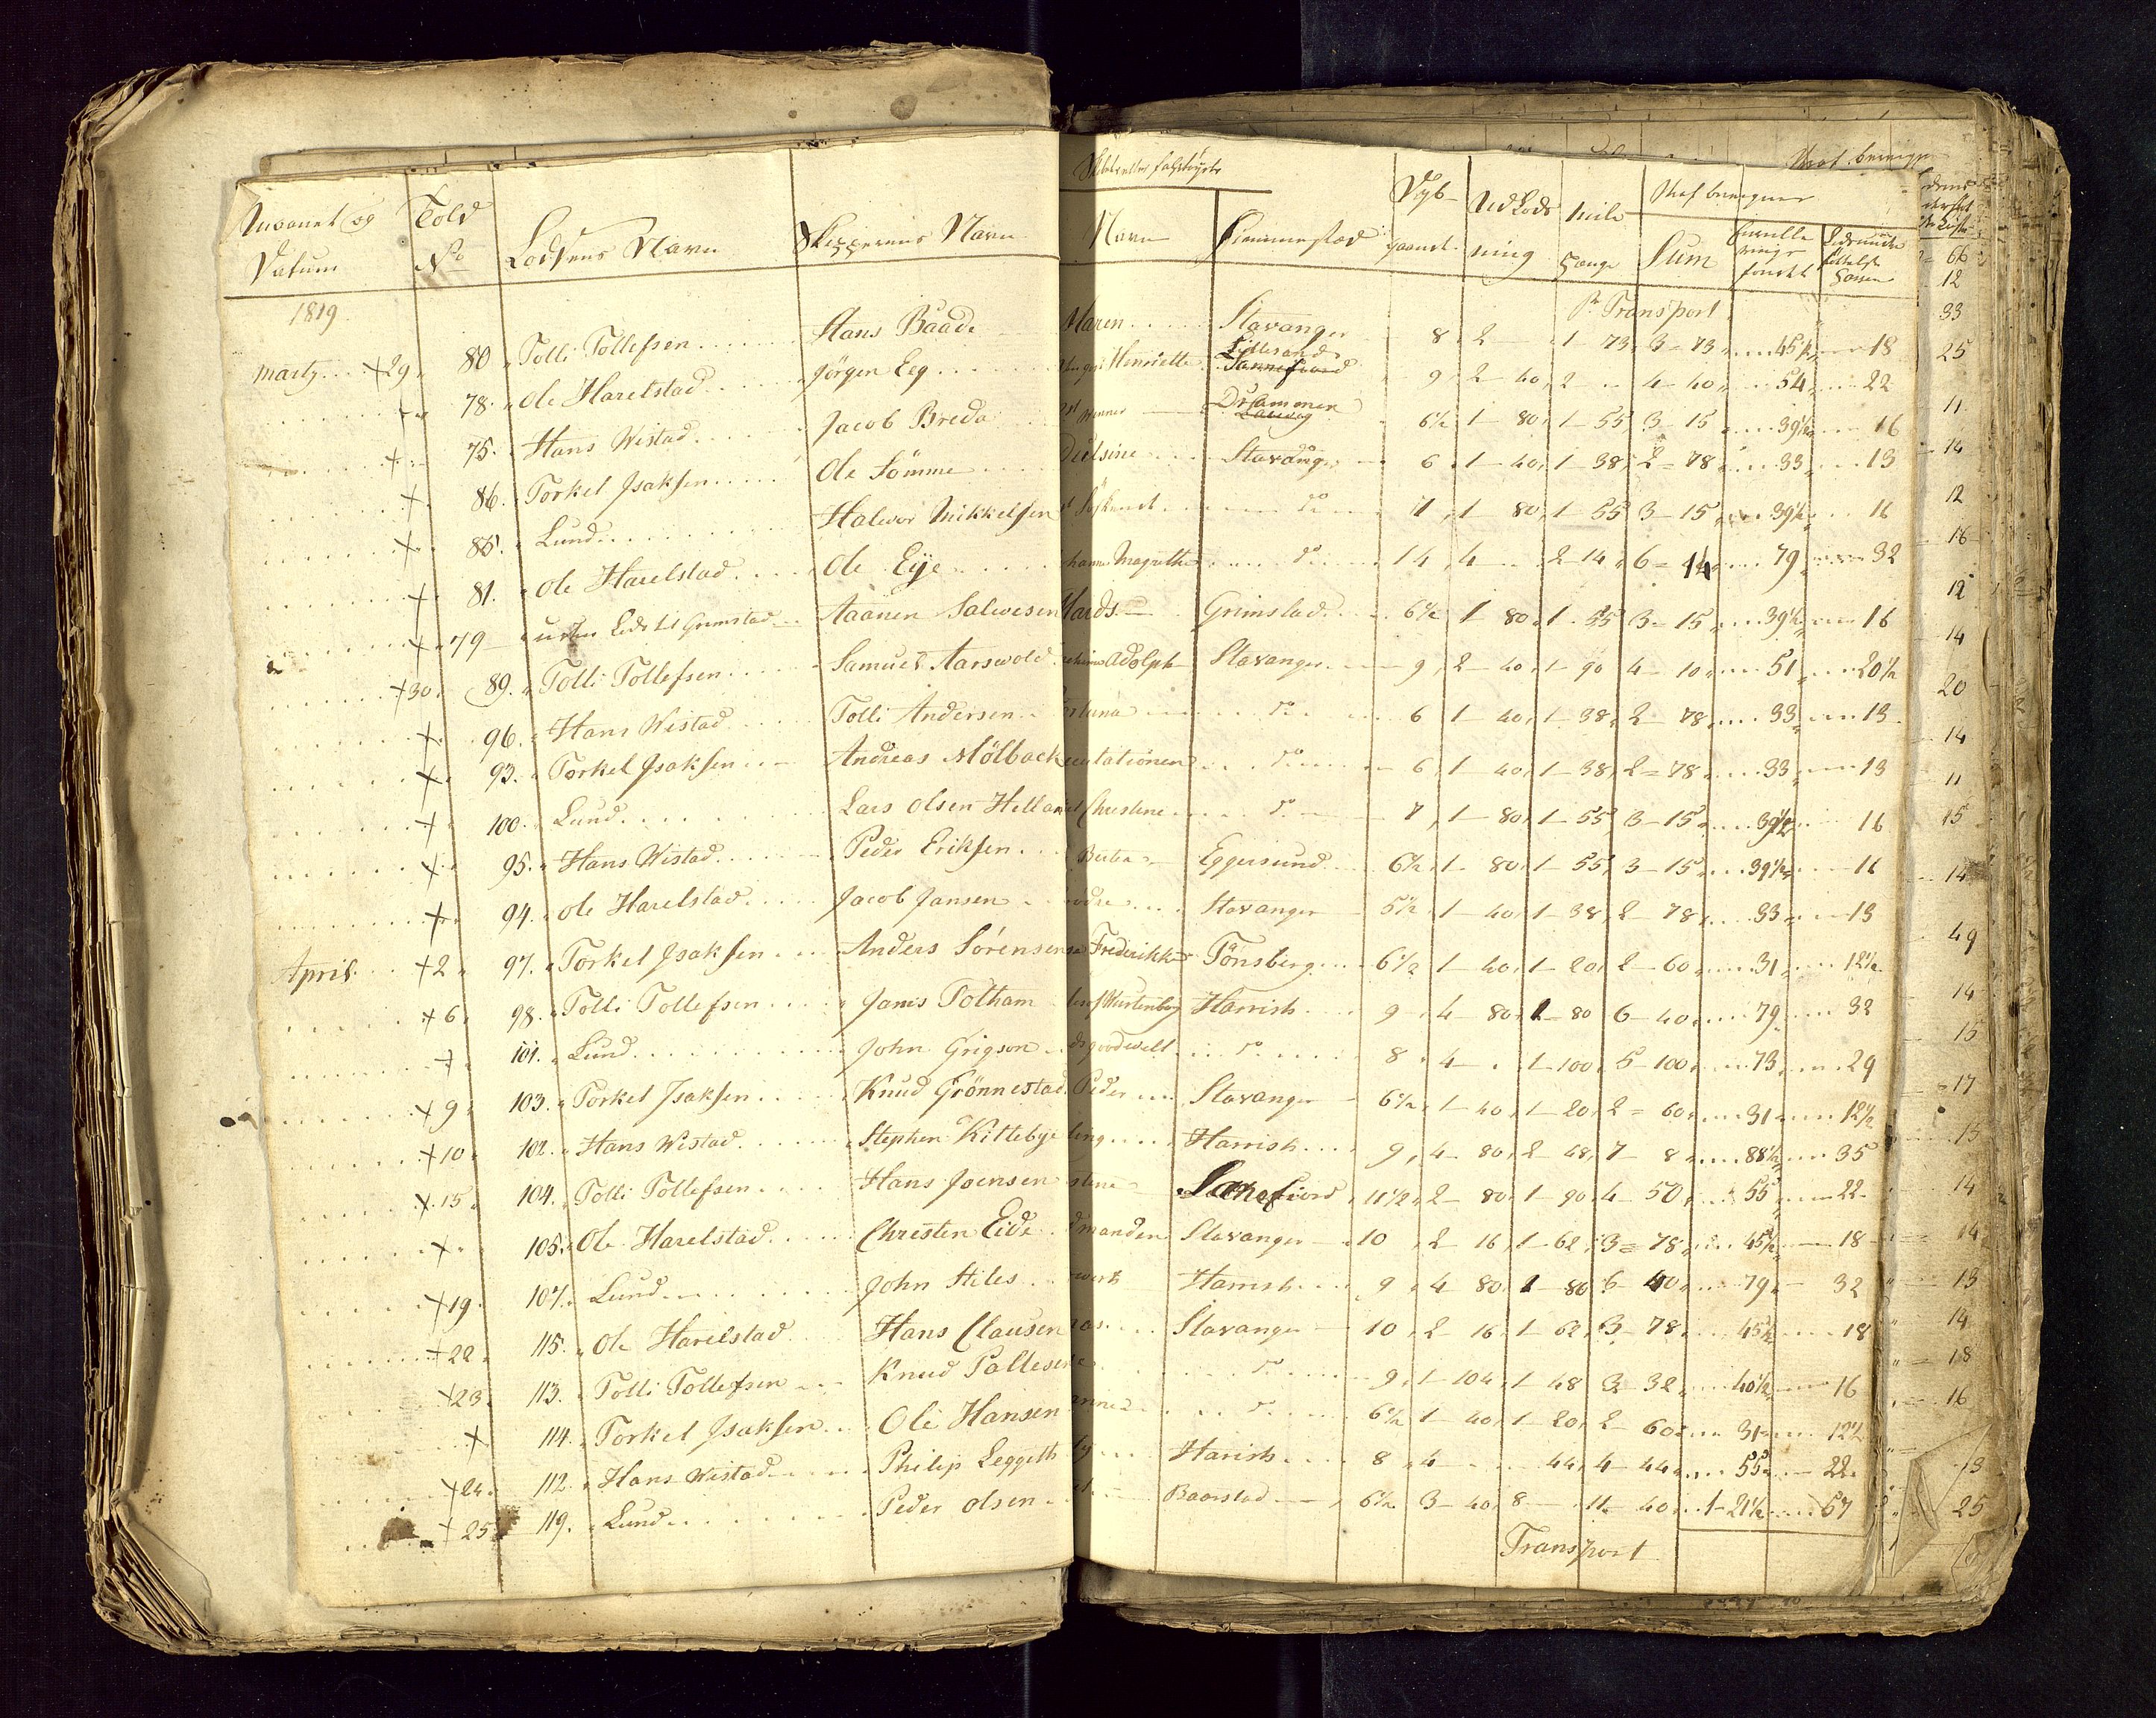 Maanet og Datum | Told No | Lodsens Navn | Skipperens Navn | Navn | Hiemmestad | Dyb- gaaent | Udlods ning | Miile Penge | Sum
1819 | Pr Transport
Martz + 29 | 80 | Tolli Tollefsen | Hans Baade | Maren | Stavanger | 8 | 2 | 1 - 73 | 3 - 73 | 45½ | 18
+ | 78 | Ole Harelstad | Jörgen Eeg | Henriette | Lillesand | 9 | 2 - 40 | 2 | 4 - 40 | 54 | 22
+ | 75 | Hans Wistad | Jacob Breda | Drammen | 6½ | 1 - 80 | 1 - 55 | 3 - 15 | 39½ | 16
+ | 86 | Torkel Isaksen | Ole Sömme | Stavanger | 6 | 1 - 40 | 1 - 38 | 2 - 78 | 33 | 13
+ | 85 | Lund | Halvor Mikkelsen | do | 7 | 1 - 80 | 1 - 55 | 3 - 15 | 39½ | 16
+ | 81 | Ole Harelstad | Ole Eije | Magrethe | do | 14 | 4 | 2 - 14 | 6 - 14 | 79 | 32
+ | 79 | Grimstad | Aaanen Salvesen | Grimstad | 6½ | 1 - 80 | 1 - 55 | 3 - 15 | 39½ | 16
+ 30 | 89 | Tolli Tollefsen | Samuel Aarswold | Adolph | Stavanger | 9 | 2 - 40 | 1 - 90 | 4 - 10 | 51 | 20½
+ | 96 | Hans Wistad | Tolli Andersen | do | 6 | 1 - 40 | 1 - 38 | 2 - 78 | 33 | 13
+ | 93 | Torkel Isaksen | Andreas Mölback | entationen | do | 6 | 1 - 40 | 1 - 38 | 2 - 78 | 33 | 13
+ | 100 | Lund | Lars Olsen Helland | Christine | do | 7 | 1 - 80 | 1 - 55 | 3 - 15 | 39½ | 16
+ | 95 | Hans Wistad | Peder Eriksen | Eggersund | 6½ | 1 - 80 | 1 - 55 | 3 - 15 | 39½ | 16
+ | 94 | Ole Harelstad | Jacob Jansen | Stavanger | 5½ | 1 - 40 | 1 - 38 | 2 - 78 | 33 | 13
April + 2 | 97 | Torkel Isaksen | Anders Sörensen | Frederikke | Tönsberg | 6½ | 1 - 40 | 1 - 20 | 2 - 60 | 31 | 12½
+ 6 | 98 | Tolli Tollefsen | Jams Potham | Harrish | 9 | 4 - 80 | 1 - 80 | 6 - 40 | 79 | 32
+ | 101 | Lund | John Grigson | goodwell | do | 8 | 4 | 1 - 100 | 5 - 100 | 73 | 29
+ 9 | 103 | Torkel Isaksen | Knud Grönnestad | Peder | Stavanger | 6½ | 1 - 40 | 1 - 20 | 2 - 60 | 31 | 12½
+ 10 | 102 | Hans Wistad | Stephen Kittebye | ling | Harrish | 9 | 4 - 80 | 2 - 48 | 7 - 8 | 88½ | 35
+ 15 | 104 | Tolli Tollefsen | Hans Joensen | stine | 11½ | 2 - 80 | 1 - 90 | 4 - 50 | 55 | 22
+ | 105 | Ole Harelstad | Christen Eide | manden | Stavanger | 10 | 2 - 16 | 1 - 62 | 3 - 78 | 45½ | 18
+ 19 | 107 | Lund | John Stiles | Harrish | 9 | 4 - 80 | 1 - 80 | 6 - 40 | 79 | 32
+ 22 | 115 | Ole Harelstad | Hans Clausen | Stavanger | 10 | 2 - 16 | 1 - 62 | 3 - 78 | 45½ | 18
+ 23 | 113 | Tolli Tollefsen | Knud Pallesen | do | 9 | 1 - 104 | 1 - 48 | 3 - 32 | 40½ | 16
+ | 114 | Torkel Isaksen | Ole Hansen | do | 6½ | 1 - 40 | 1 - 20 | 2 - 60 | 31 | 12½
+ 24 | 112 | Hans Wistad | Philip Leggeth | Harish | 8 | 4 | 44 | 4 - 44 | 55 | 22
+ 25 | 119 | Lund | Peder Olsen | Baarstad | 6½ | 3 - 40 | 8 | 11 - 40 | 1 - 21½ | 57
Transport